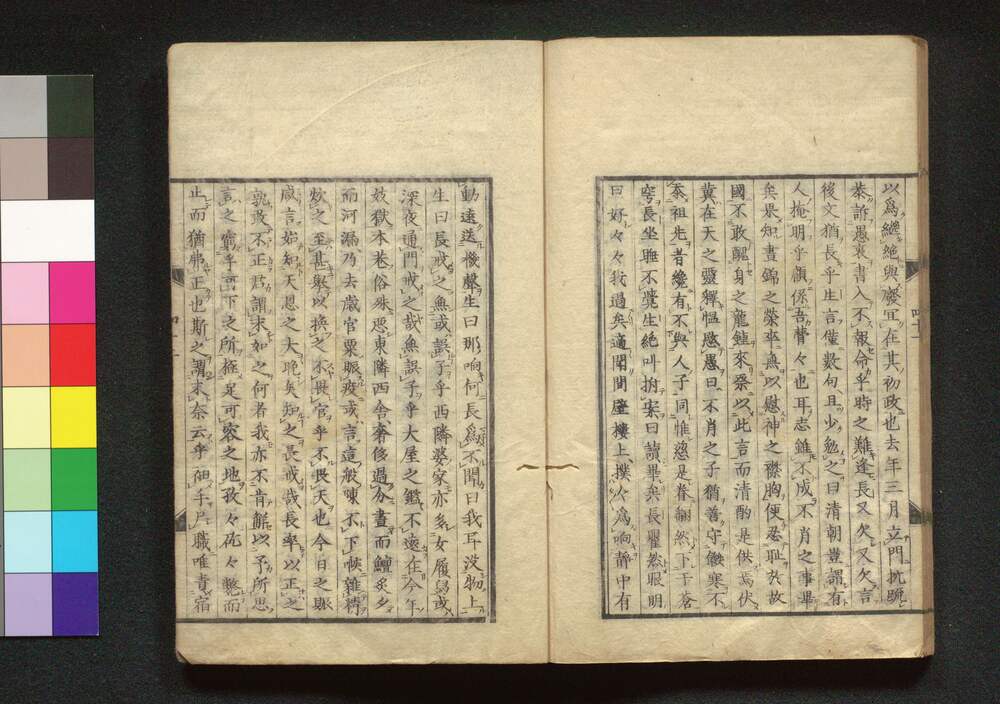 以爲繼絶與廢宜在其初政也去年三月立門抗腕
恭訴愚衷書入不報命乎時之難逢長又欠又欠言
後文猶長乎生言僅數句且少勉之曰清朝豈謂有
人掩明乎顧係吾曹々也耳志雖不成不肖之事畢
矣果知晝錦之榮率無以慰神之襟胸便忍恥於故
國不敢醜身之龍鍾來奠以此言而清酌是供焉伏
冀在天之靈釋慍愍愚曰不肖之子猶善守儉寒不
忝祖先者纔有不與人子同惟愆是眷翻然下于蒼
穹長坐睡不覺生絶叫拍案曰讀畢矣長瞿然眼明
曰好々々我過矣適聞間壁樓上撲々爲响靜中有
動遠送機聲生曰那响何長爲不聞曰我耳沒物上
生曰長戒之魚或誤子乎西隣婆家亦多女履舄或
深夜通門戒之哉魚誤子乎大屋之鑑不遠在今年
妓獄本巷俗殊惡東隣西舍奢侈過分晝而鱣炙夕
而河漏乃去歲官粟賑疫或言這般噀不下帙雜精
欸之至甚與以換之不畏官乎不畏天也今日之賑
咸言始知天恩之大晚矣知之長戒哉長率以正之
孰敢不正君謂末如之何者我亦不肯解以予所思
言之寵乎吾下之所推足可容之地孜々矻々懇而
止而猶弗正也斯之謂末奈云乎佃手尸職唯責宿